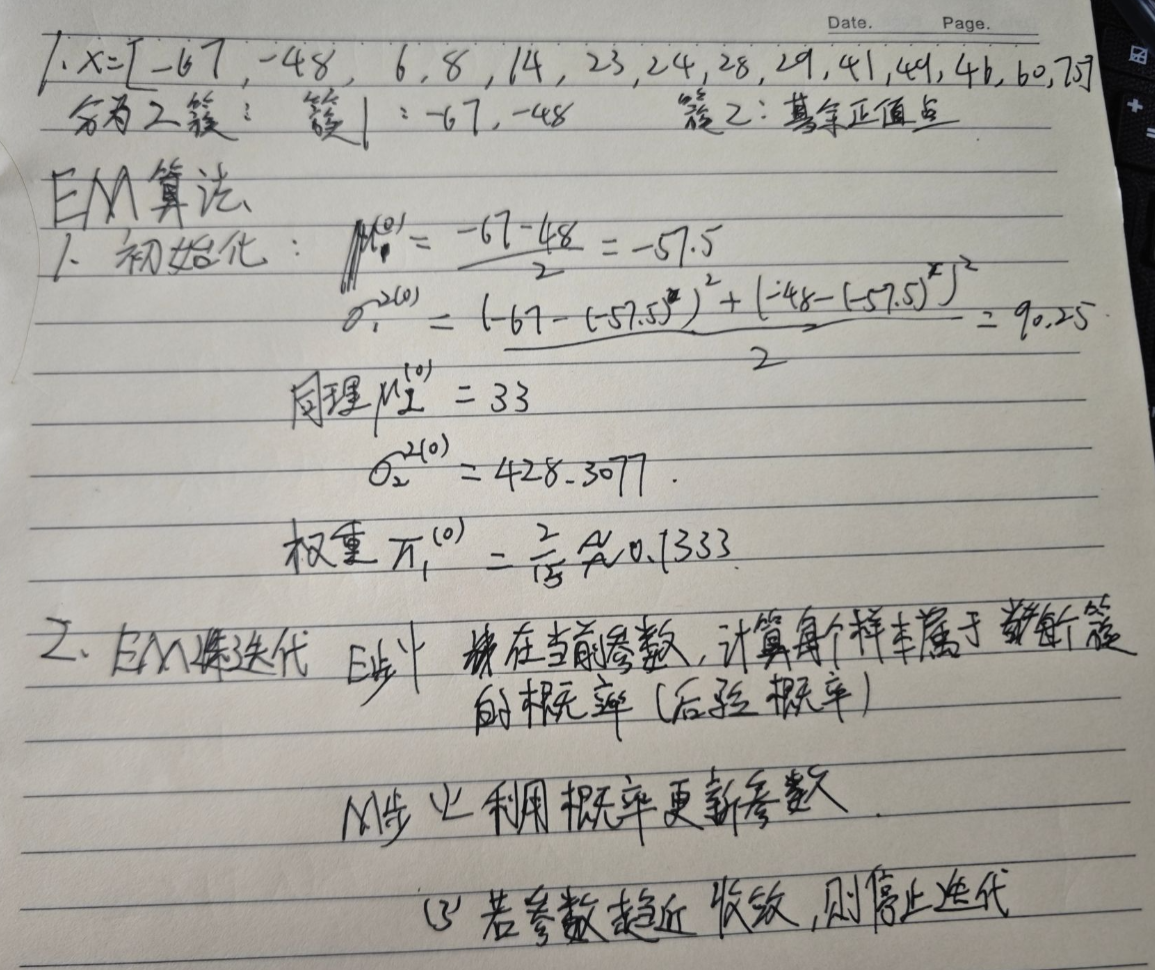 Date. Page.
1. x=[-67, -48, 6, 8, 14, 23, 24, 28, 29, 41, 49, 46, 60, 75]
分为2簇: 簇1: -67, -48 簇2: 其余正值点
EM算法
1. 初始化: μ₁⁽⁰⁾ = (-67-48)/2 = -57.5
σ₁²⁽⁰⁾ = ((-67-(-57.5))² + (-48-(-57.5))²)/2 = 90.25
同理 μ₂⁽⁰⁾ = 33
σ₂²⁽⁰⁾ = 428.3077.
权重 π₁⁽⁰⁾ = 2/15 ≈ 0.1333
2. EM迭代 E步 (1) 在当前参数, 计算每个样本属于每个簇
的概率 (后验概率)
M步 (2) 利用概率更新参数.
(3) 若参数趋近收敛, 则停止迭代